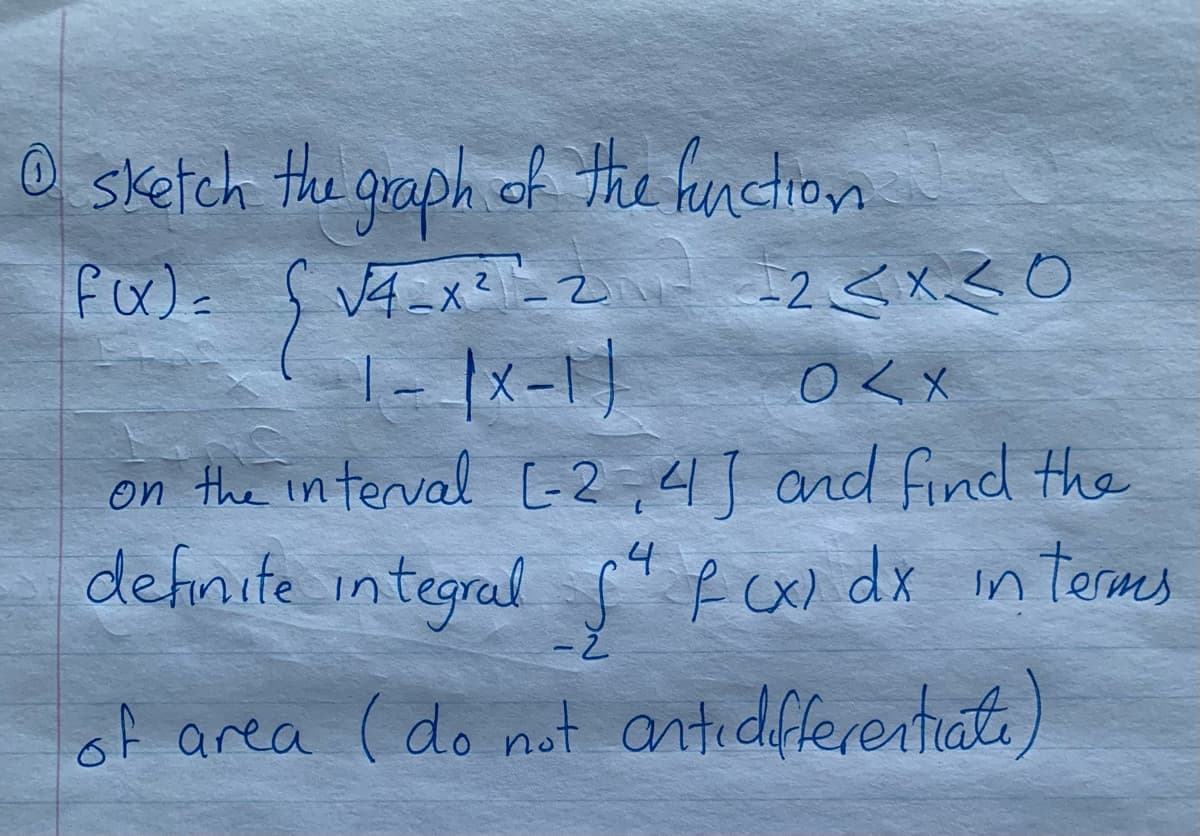 ① sketch the graph of the function
f(x) = { √4-x² - 2 -2 ≤ x ≤ 0
1 - |x-1| 0 < x
on the interval [-2, 4] and find the
definite integral ∫⁴₋₂ f(x) dx in terms
of area (do not antidifferentiate)